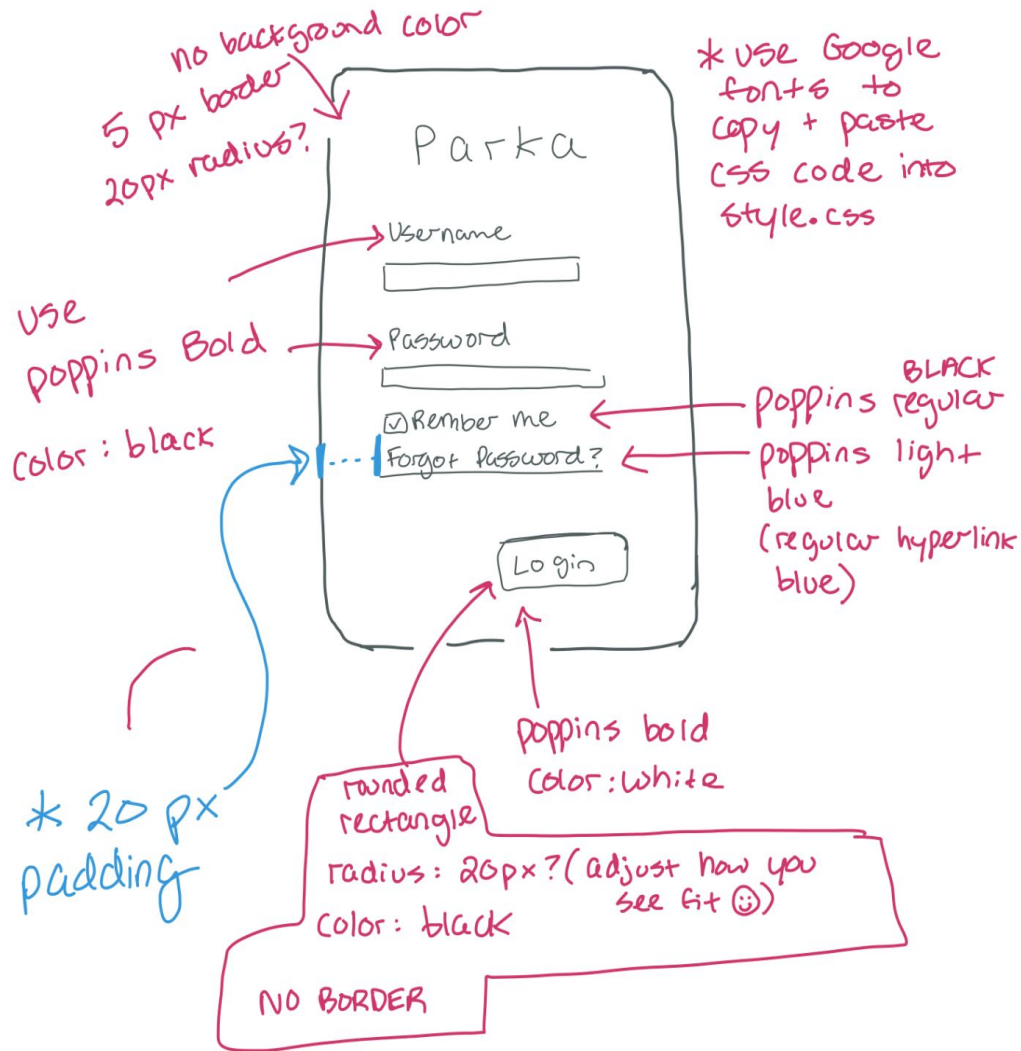 no background color
5 px border
20px radius?
* use Google
fonts to
copy + paste
css code into
style.css
Parka
Username
Password
Rember me
Forgot Password?
Login
use
poppins Bold
color: black
BLACK
poppins regular
poppins light
blue
(regular hyperlink
blue)
* 20 px
padding
poppins bold
color: white
rounded
rectangle
radius: 20px? (adjust how you
see fit ☺)
color: black
NO BORDER